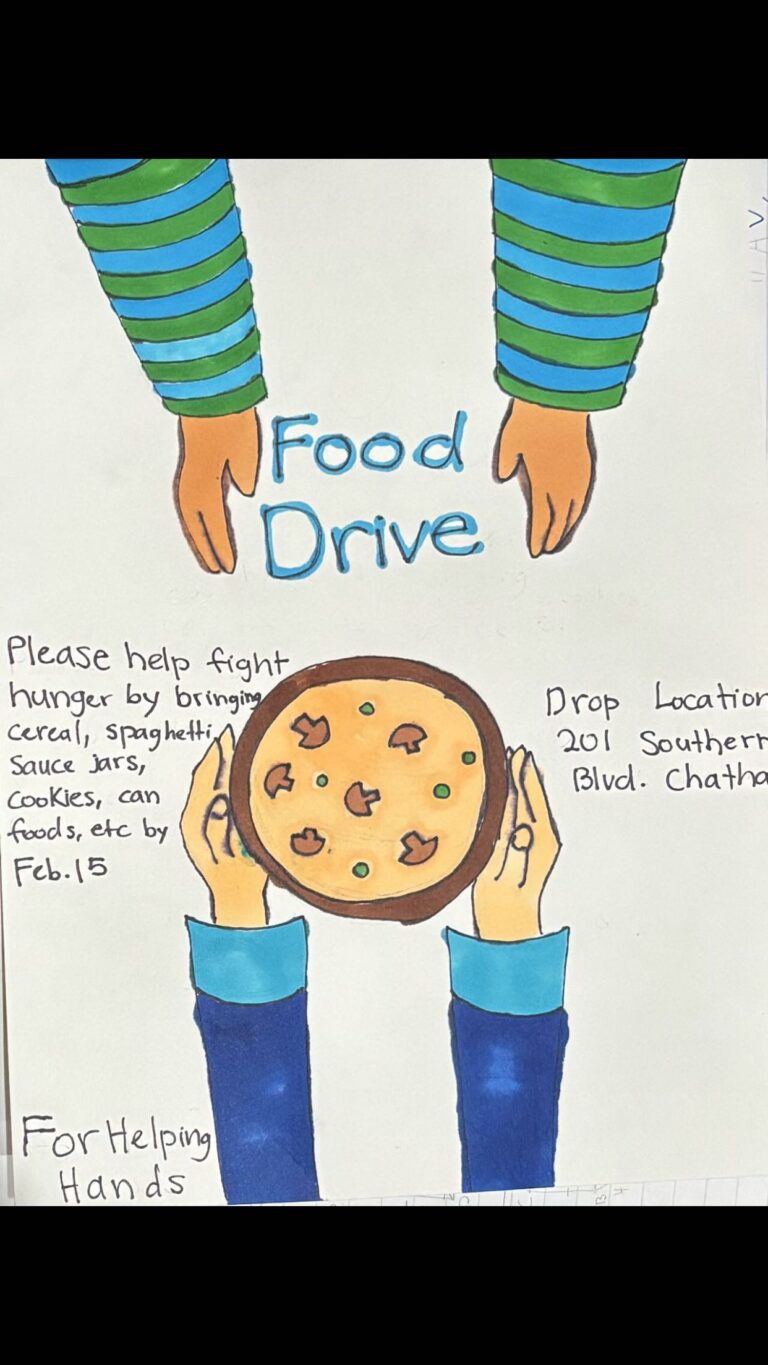 Food
Drive
Please help fight
hunger by bringing
cereal, spaghetti
Sauce jars,
Cookies, can
foods, etc by
Feb. 15
Drop Location
201 Southern
Blvd. Chatha
For Helping
Hands